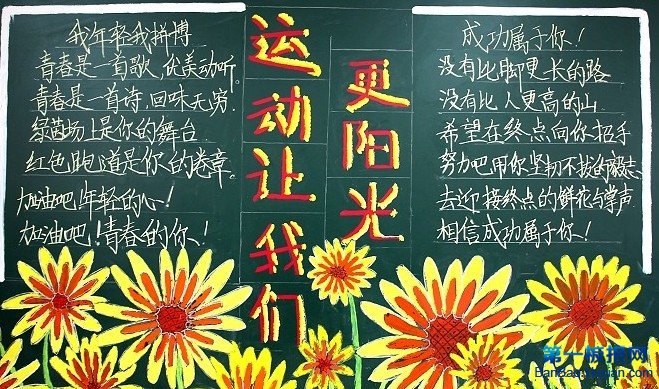 我年轻我拼搏
青春是一首歌,优美动听
青春是一首诗,回味无穷.
绿茵场上是你的舞台
红色跑道是你的卷章.
加油吧!年轻的心!
加油吧!!青春的你!
运动让我们
更阳光
成功属于你!
没有比脚更长的路
没有比人更高的山
希望在终点向你招手
努力吧用你坚韧不拔的毅志
去迎接终点的鲜花与掌声
相信成功属于你!
第一板报网